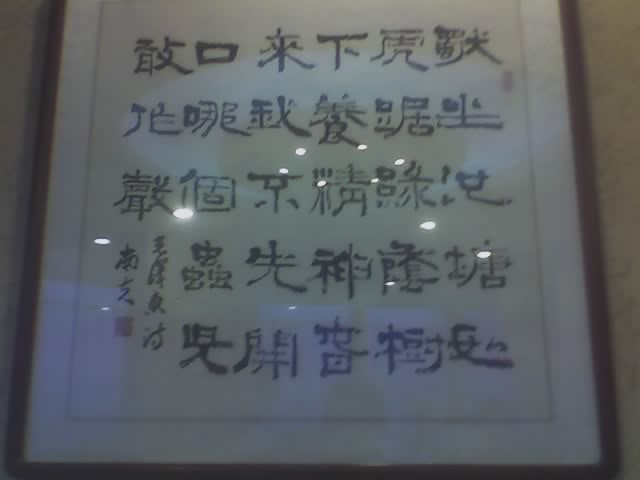 獨坐池塘如
虎踞綠蔭樹
下養精神春
來我不先開
口哪個蟲兒
敢作聲
毛澤東詩